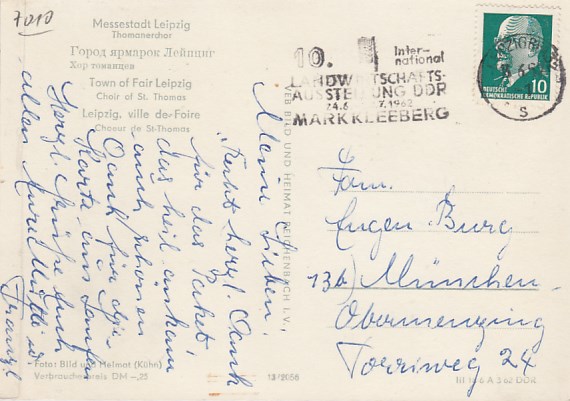 7010
Messestadt Leipzig
Thomanerchor
Город ярмарок Лейпциг
Хор томанцев
Town of Fair Leipzig
Choir of St. Thomas
Leipzig, ville de Foire
Choeur de St-Thomas
10. Inter-
national
LANDWIRTSCHAFTS-
AUSSTELLUNG DDR
24.6 7.1962
MARKKLEEBERG
DEUTSCHE
DEMOKRATISCHE REPUBLIK
10
S
Meine Lieben,
herzl. Dank
für das Paket
das heil ankam
auch schönen
Dank für die
Karte aus
Herzl. Grüße Euch
allen Eure Mutti u.
Franzl
VEB BILD UND HEIMAT REICHENBACH I. V.,
Fam.
Eugen Burg
13b) München-
Obermenzing
Torriweg 24
Foto: Bild und Heimat (Kühn)
Verbraucherpreis DM -,25
13/2056
A 3 62 DDR